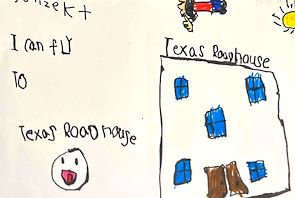 I can fly
To
Texas Roadhouse
Texas Roadhouse